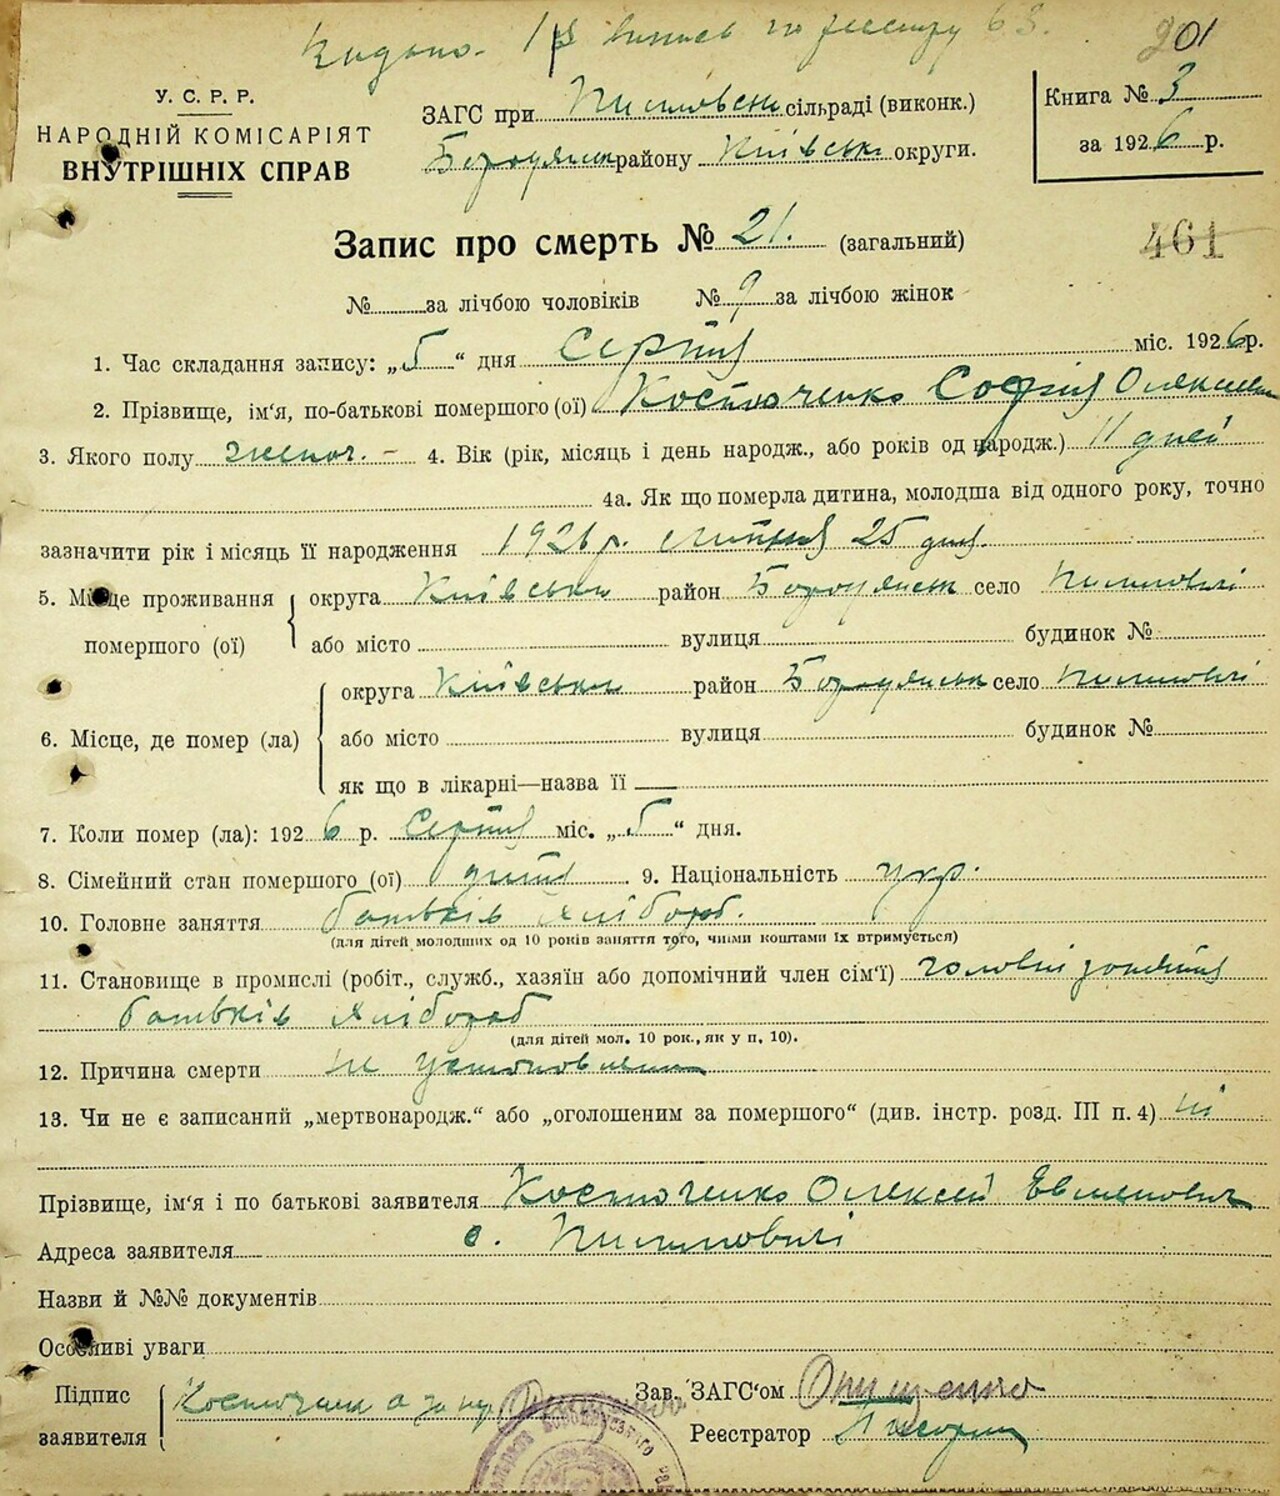 Видано. 1/8 випись по реєстру 63. 201
У. С. Р. Р.
НАРОДНІЙ КОМІСАРІЯТ
ВНУТРІШНІХ СПРАВ
ЗАГС при Пилиповськ сільраді (виконк.)
Бородянськ району Київськ округи.
Книга № 3
за 1926 р.
Запис про смерть № 21. (загальний)
461
№ за лічбою чоловіків № 9 за лічбою жінок
1. Час складання запису: „5“ дня Серпня міс. 1926 р.
2. Прізвище, ім‘я, по-батькові помершого (ої) Костюченко Софія Олексієвн
3. Якого полу жіноч. – 4. Вік (рік, місяць і день народж., або років од народж.) 11 дней
4а. Як що померла дитина, молодша від одного року, точно
зазначити рік і місяць її народження 1926 р. липня 25 дня.
5. Місце проживання округа Київська район Бородянськ село Пилиповичі
помершого (ої) або місто вулиця будинок №
округа Київська район Бородянськ село Пилиповичі
6. Місце, де помер (ла) або місто вулиця будинок №
як що в лікарні—назва її —
7. Коли помер (ла): 1926 р. Серпня міс. „5“ дня.
8. Сімейний стан помершого (ої) дитя 9. Національність укр.
10. Головне заняття батьків хлібороб.
(для дітей молодших од 10 років заняття того, чиїми коштами їх втримується)
11. Становище в промислі (робіт., служб., хазяїн або допомічний член сім‘ї) головні заняття
батьків хлібороб
(для дітей мол. 10 рок., як у п. 10).
12. Причина смерти не установлена
13. Чи не є записаний „мертвонародж.“ або „оголошеним за помершого“ (див. інстр. розд. III п. 4) ні
Прізвище, ім‘я і по батькові заявителя Костюченко Олексей Евменович
Адреса заявителя с. Пилиповичі
Назви й №№ документів
Особливі уваги
Підпис заявителя Костюченк а за нр
Зав. ЗАГС‘ом Онищенко
Реєстратор